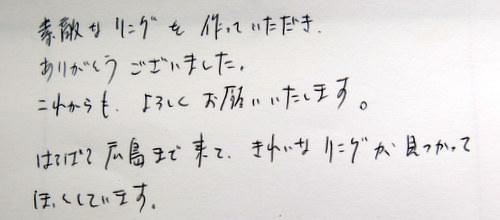 素敵なリングを作っていただき、
ありがとうございました。
これからも、よろしくお願いいたします。
はるばる広島まで来て、きれいなリングが見つかって
ほっくしています。